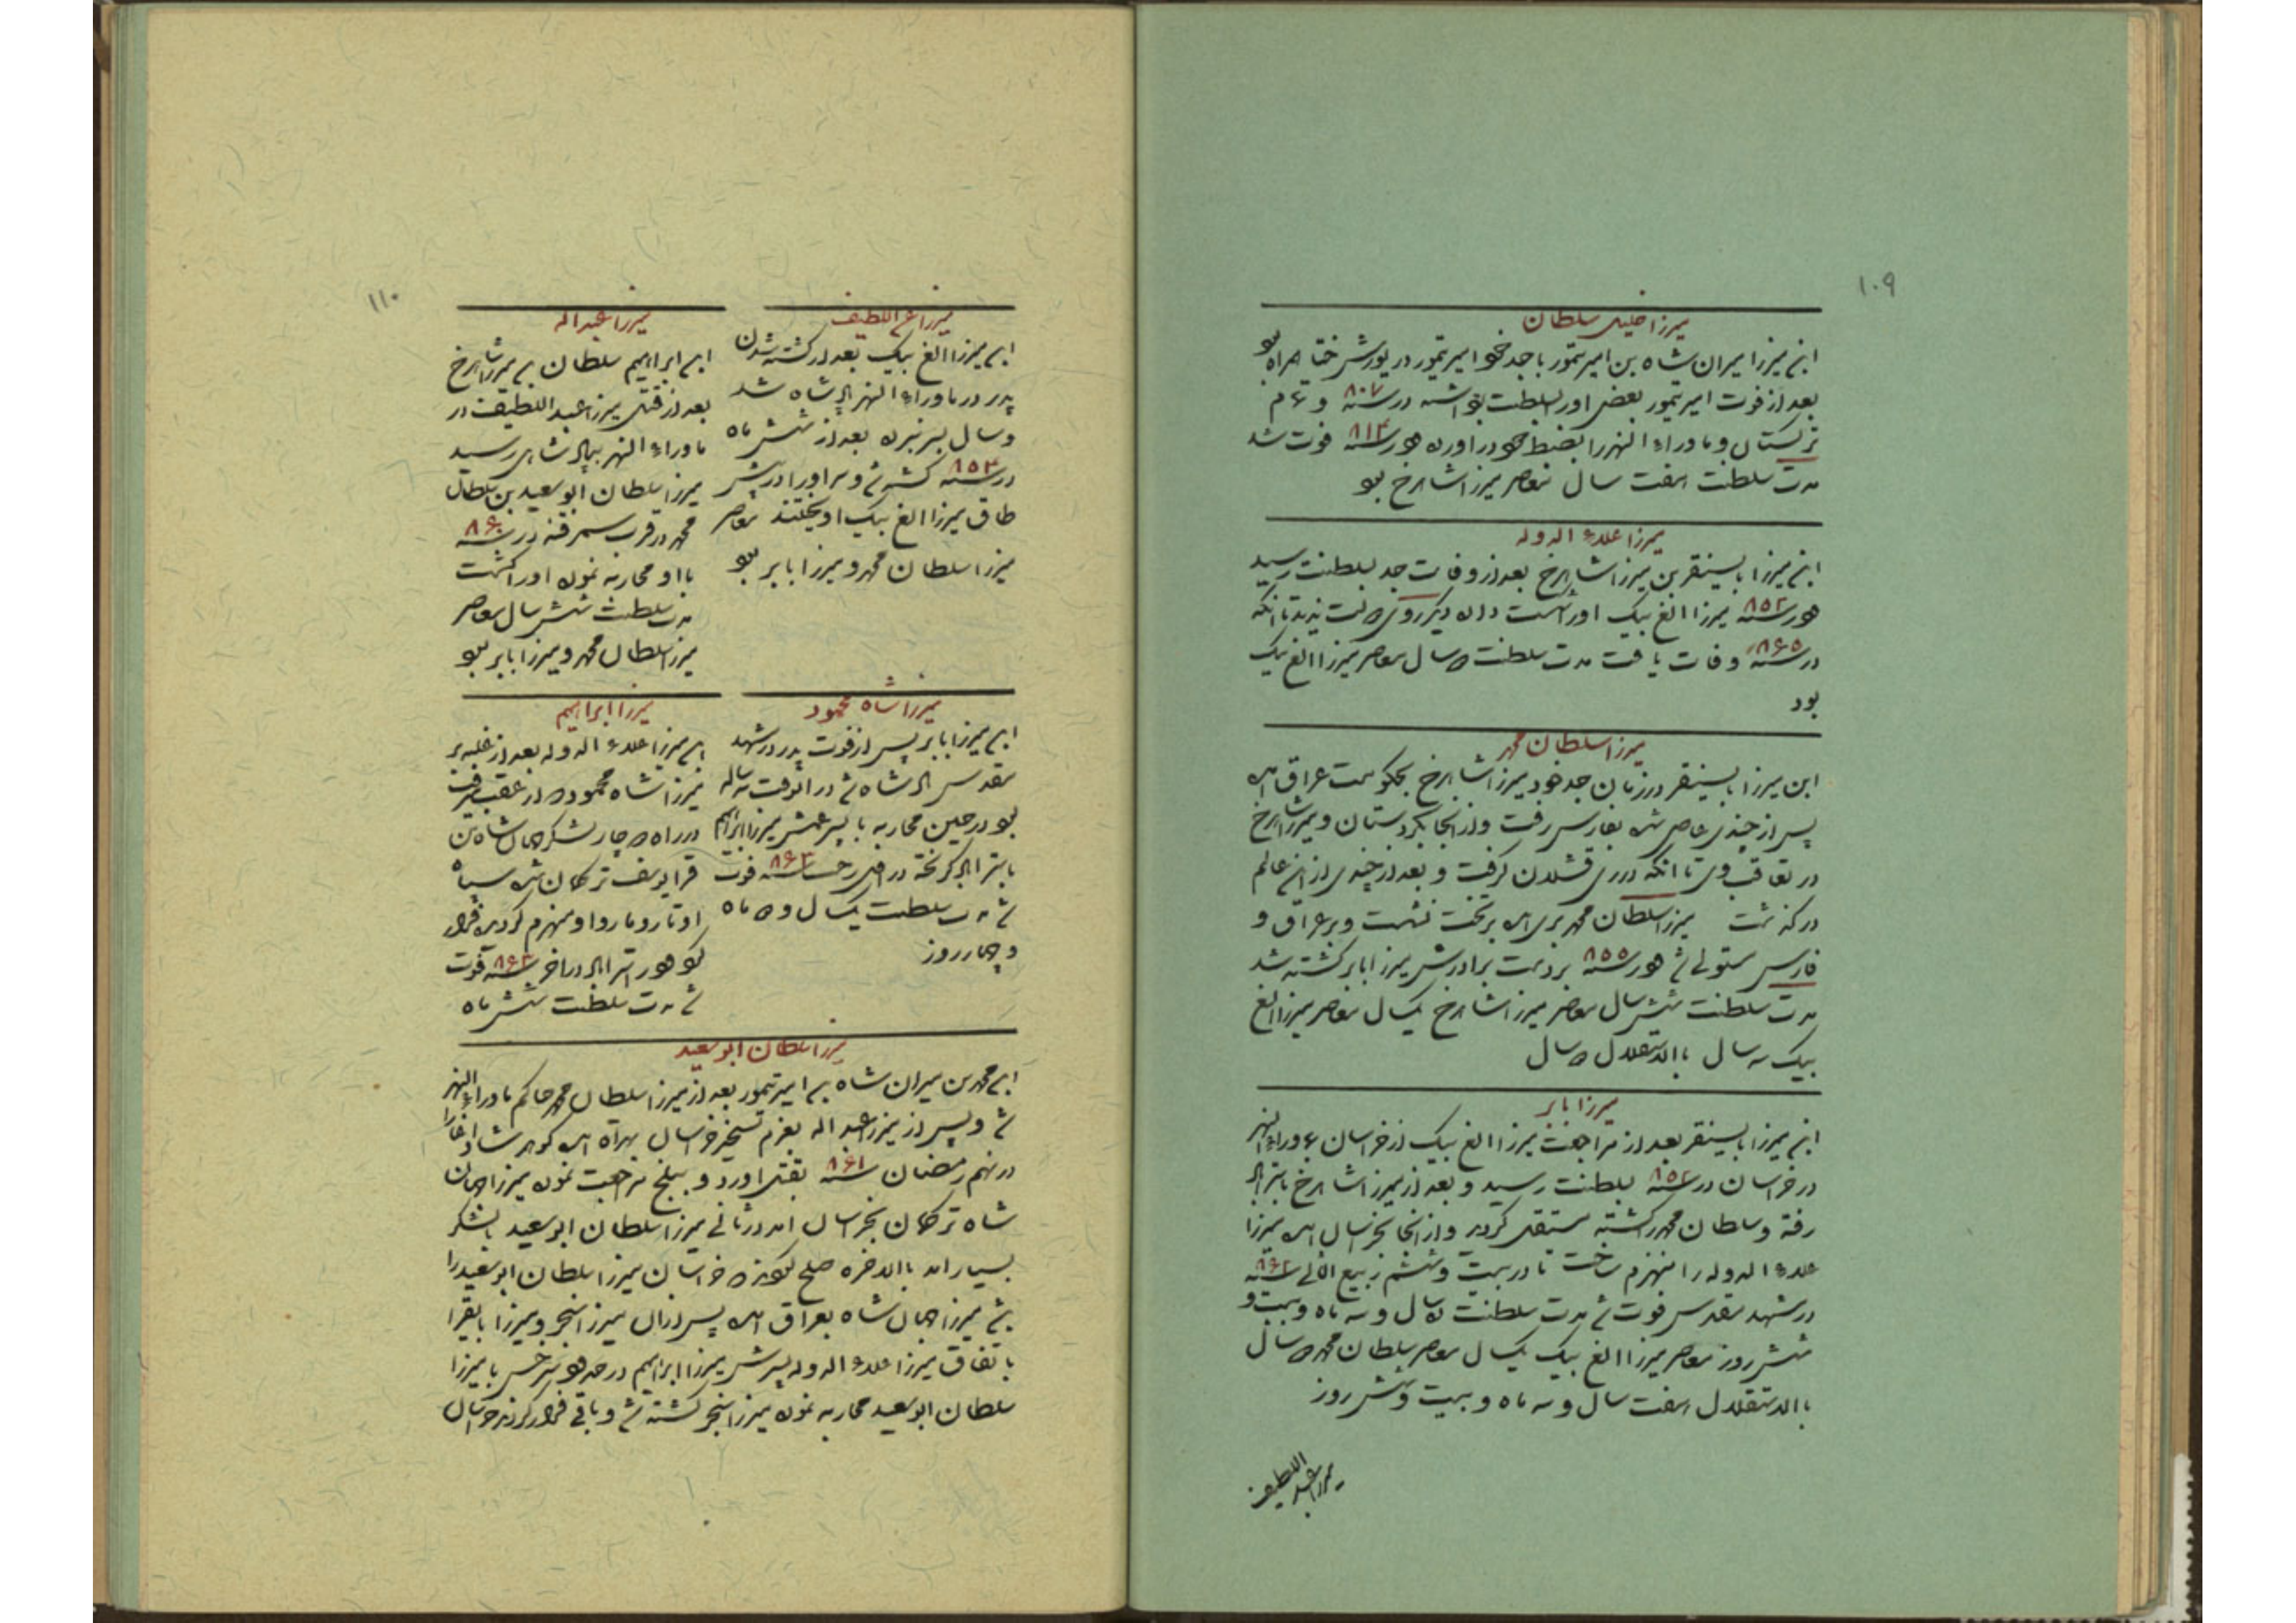 ۱۰۹
میرزا خلیل سلطان
ابن میرزا میران شاه بن امیر تیمور با جد خود امیر تیمور در یورش ختا همراه بود
بعد از فوت امیر تیمور بعضی او را بسلطنت برداشته در سنه ۸۰۷
ترکستان و ماوراء النهر را بضبط خود در اورده در سنه ۸۱۴ فوت شد
مدت سلطنت هفت سال معاصر میرزا شاهرخ بود
میرزا علاء الدوله
ابن میرزا بایسنقر بن میرزا شاهرخ بعد از وفات جد بسلطنت رسید
در سنه ۸۵۲ میرزا الغ بیک او را شکست داده دیگر روی دولت ندید تا انکه
در سنه ۸۶۵ وفات یافت مدت سلطنت سال معاصر میرزا الغ بیک
بود
میرزا سلطان محمد
ابن میرزا بایسنقر در زمان جد خود میرزا شاهرخ بحکومت عراق امده
پس از چندی عاصی شده بفارس رفت و از انجا بکردستان و میرزا شاهرخ
در تعاقب وی تا انکه در ری قشلاق گرفت و بعد از چندی از این عالم
درگذشت میرزا سلطان محمد بری امده بر تخت نشست و بر عراق و
فارس مستولی شد در سنه ۸۵۵ بر دست برادرش میرزا بابر کشته شد
مدت سلطنت شش سال معاصر میرزا شاهرخ یکسال معاصر میرزا الغ
بیک سه سال باالاستقلال سال
میرزا بابر
ابن میرزا بایسنقر بعد از مراجعت میرزا الغ بیک از خراسان بماوراء النهر
در خراسان در سنه ۸۵۲ بسلطنت رسید و بعد از میرزا شاهرخ باستراباد
رفته و سلطان محمد را کشته مستقل گردید و از انجا بخراسان امده میرزا
علاء الدوله را منهزم ساخت تا در بیست و ششم ربیع الثانی سنه
در مشهد مقدس فوت شد مدت سلطنت سال و سه ماه و بیست و
شش روز معاصر میرزا الغ بیک یکسال معاصر سلطان محمد سال
باالاستقلال هفت سال و سه ماه و بیست و شش روز
میرزا عبد اللطیف
۱۱۰
میرزا عبد اللطیف
ابن میرزا الغ بیک بعد از کشته شدن
پدر در ماوراء النهر پادشاه شد
و سال بسر نبرده بعد از شش ماه
در سنه ۸۵۴ کشته شد و سر او را در پیش
طاق میرزا الغ بیک اویختند معاصر
میرزا سلطان محمد و میرزا بابر بود
میرزا عبد اله
ابن ابراهیم سلطان بن میرزا شاهرخ
بعد از قتل میرزا عبد اللطیف در
ماوراء النهر بپادشاهی رسید
میرزا سلطان ابو سعید بن سلطان
محمد در قرب سمرقند در سنه
با او محاربه نموده او را کشت
مدت سلطنت شش سال معاصر
میرزا سلطان محمد و میرزا بابر بود
میرزا شاه محمود
ابن میرزا بابر پس از فوت پدر در مشهد
مقدس پادشاه شد در انوقت ساله
بود در حین محاربه با پسر عمش میرزا ابراهیم
باستراباد گریخته در سنه ۸۶۳ فوت
شد مدت سلطنت یکسال و ماه
و چهار روز
میرزا ابراهیم
ابن میرزا علاء الدوله بعد از غلبه بر
میرزا شاه محمود از عقب میرفت
در راه دچار لشکر جهان شاه بن
قرا یوسف ترکمان شده سپاه
او تار و مار و او منهزم گردیده فرار
نمود در استراباد در اخر سنه ۸۶۳ فوت
شد مدت سلطنت شش ماه
میرزا سلطان ابو سعید
ابن محمد بن میران شاه بن امیر تیمور بعد از میرزا سلطان محمد حاکم ماوراء النهر
شد و پس از میرزا عبد اله بعزم تسخیر خراسان بهراة امده گوهر شاد اغا را
در نهم رمضان سنه ۸۶۱ بقتل اورد و ببلخ مراجعت نموده میرزا جهان
شاه ترکمان بخراسان امد در ثانی میرزا سلطان ابو سعید با لشکر
بسیار امد باالاخره صلح نمودند خراسان میرزا سلطان ابو سعید را
شد میرزا جهان شاه بعراق امده پس از ان میرزا سنجر و میرزا بایقرا
باتفاق میرزا علاء الدوله پسرش میرزا ابراهیم در حدود سرخس با میرزا
سلطان ابو سعید محاربه نموده میرزا سنجر کشته شد و باقی فرار کردند خراسان